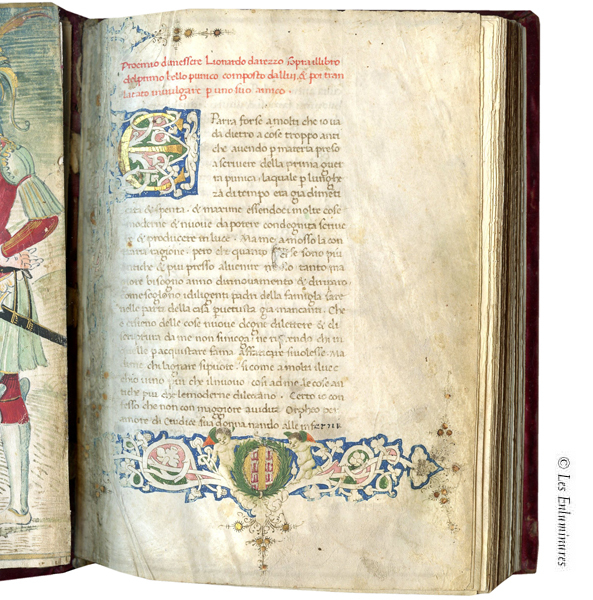 Proemio da messere Lionardo darezzo sopra illibro
del primo bello punico composto da llui & poi tran
slatato in vulgare p uno suo amico .
PArra forse a molti che io va
da dietro a cose troppo anti
che avendo p materia preso
a scrivere della prima guer
ra punica . laquale p lunghe
za di tempo era gia dimeti
cata & spenta . & maxime essendoci molte cose
moderne & nuove da potere condegnita scrive
re & producere in luce . Ma me a mosso la con
traria ragione . pero che quanto se sono piu
antiche & piu presso al venir meno tanto ma
giore bisogno anno di rinovamento & di
come sogliono idiligenti padri della famiglia fare
nelle parti della casa piu vetusta gia mancanti . Che
delle cose nuove degni dilettere & di
da me non si niega chi
volesse p acquistare fama affaticare si volesse . Ma
chi la onare si puote . Si come a molti il vec
chio vino piu che il nuovo . cosi ad me le cose an
tiche piu che le moderne dilectano . Certo io con
fesso che non con maggiore avidita Orpheo per
amore di Eudice sua donna nando alle inferni
© Les Enluminures